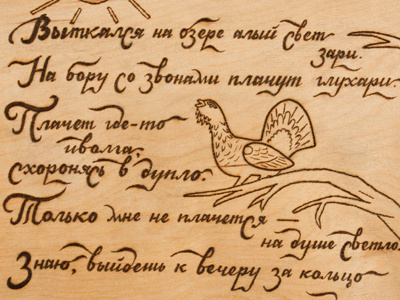 Выткался на озере алый свет
зари.
На бору со звонами плачут глухари.
Плачет где-то
иволга,
схоронясь в дупло.
Только мне не плачется —
на душе светло.
Знаю, выйдешь к вечеру за кольцо